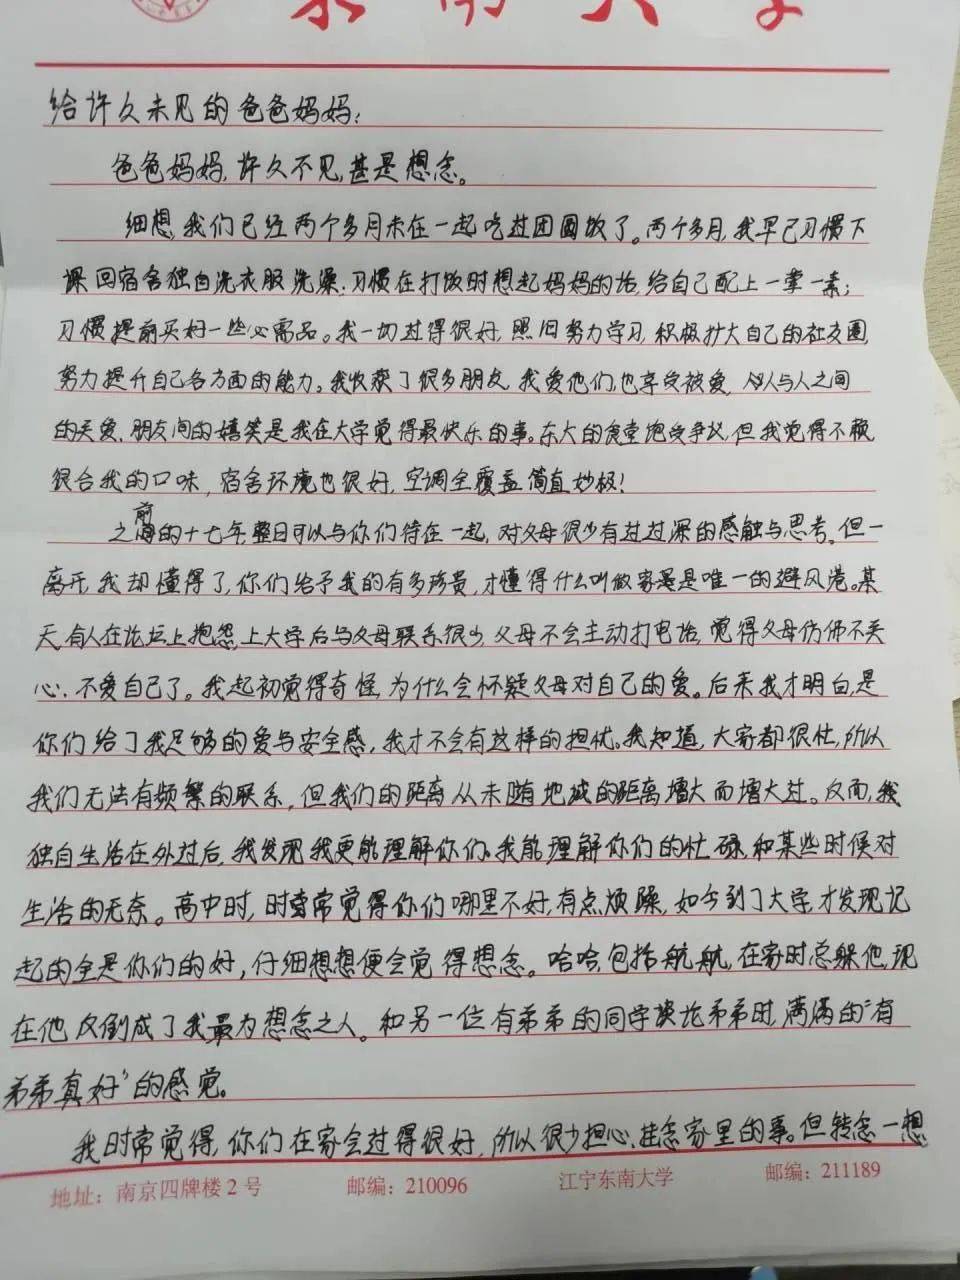 东南大学
给许久未见的爸爸妈妈：
爸爸妈妈，许久不见，甚是想念。
细想，我们已经两个多月未在一起吃过团圆饭了。两个多月，我早已习惯下
课回宿舍独自洗衣服洗澡，习惯在打饭时想起妈妈的话，给自己配上一荤一素；
习惯提前买好一些必需品。我一切过得很好，照旧努力学习，积极扩大自己的社交圈，
努力提升自己各方面的能力。我收获了很多朋友，我爱他们，也享受被爱，人与人之间
的关爱、朋友间的嬉笑是我在大学觉得最快乐的事。东大的食堂饱受争议，但我觉得不赖，
很合我的口味，宿舍环境也很好，空调全覆盖简直妙极！
之前的十七年，整日可以与你们待在一起，对父母很少有过过深的感触与思考。但一
离开，我却懂得了，你们给予我的有多珍贵，才懂得什么叫做家是唯一的避风港。某
天，有人在论坛上抱怨，上大学后与父母联系很少，父母不会主动打电话，觉得父母仿佛不关
心、不爱自己了。我起初觉得奇怪，为什么会怀疑父母对自己的爱。后来我才明白，是
你们给了我足够的爱与安全感，我才不会有这样的担忧。我知道，大家都很忙，所以
我们无法有频繁的联系，但我们的距离从未随地域的距离增大而增大过。反而，我
独自生活在外过后，我发现我更能理解你们。我能理解你们的忙碌和某些时候对
生活的无奈。高中时，时常觉得你们哪里不好，有点烦躁，如今到了大学，才发现记
起的全是你们的好，仔细想想便会觉得想念。哈哈，包括航航，在家时总躲他，现
在他反倒成了我最为想念之人。和另一位有弟弟的同学谈论弟弟时，满满的“有
弟弟真好”的感觉。
我时常觉得，你们在家会过得很好，所以很少担心、挂念家里的事。但转念一想
地址：南京四牌楼2号 邮编：210096 江宁东南大学 邮编：211189